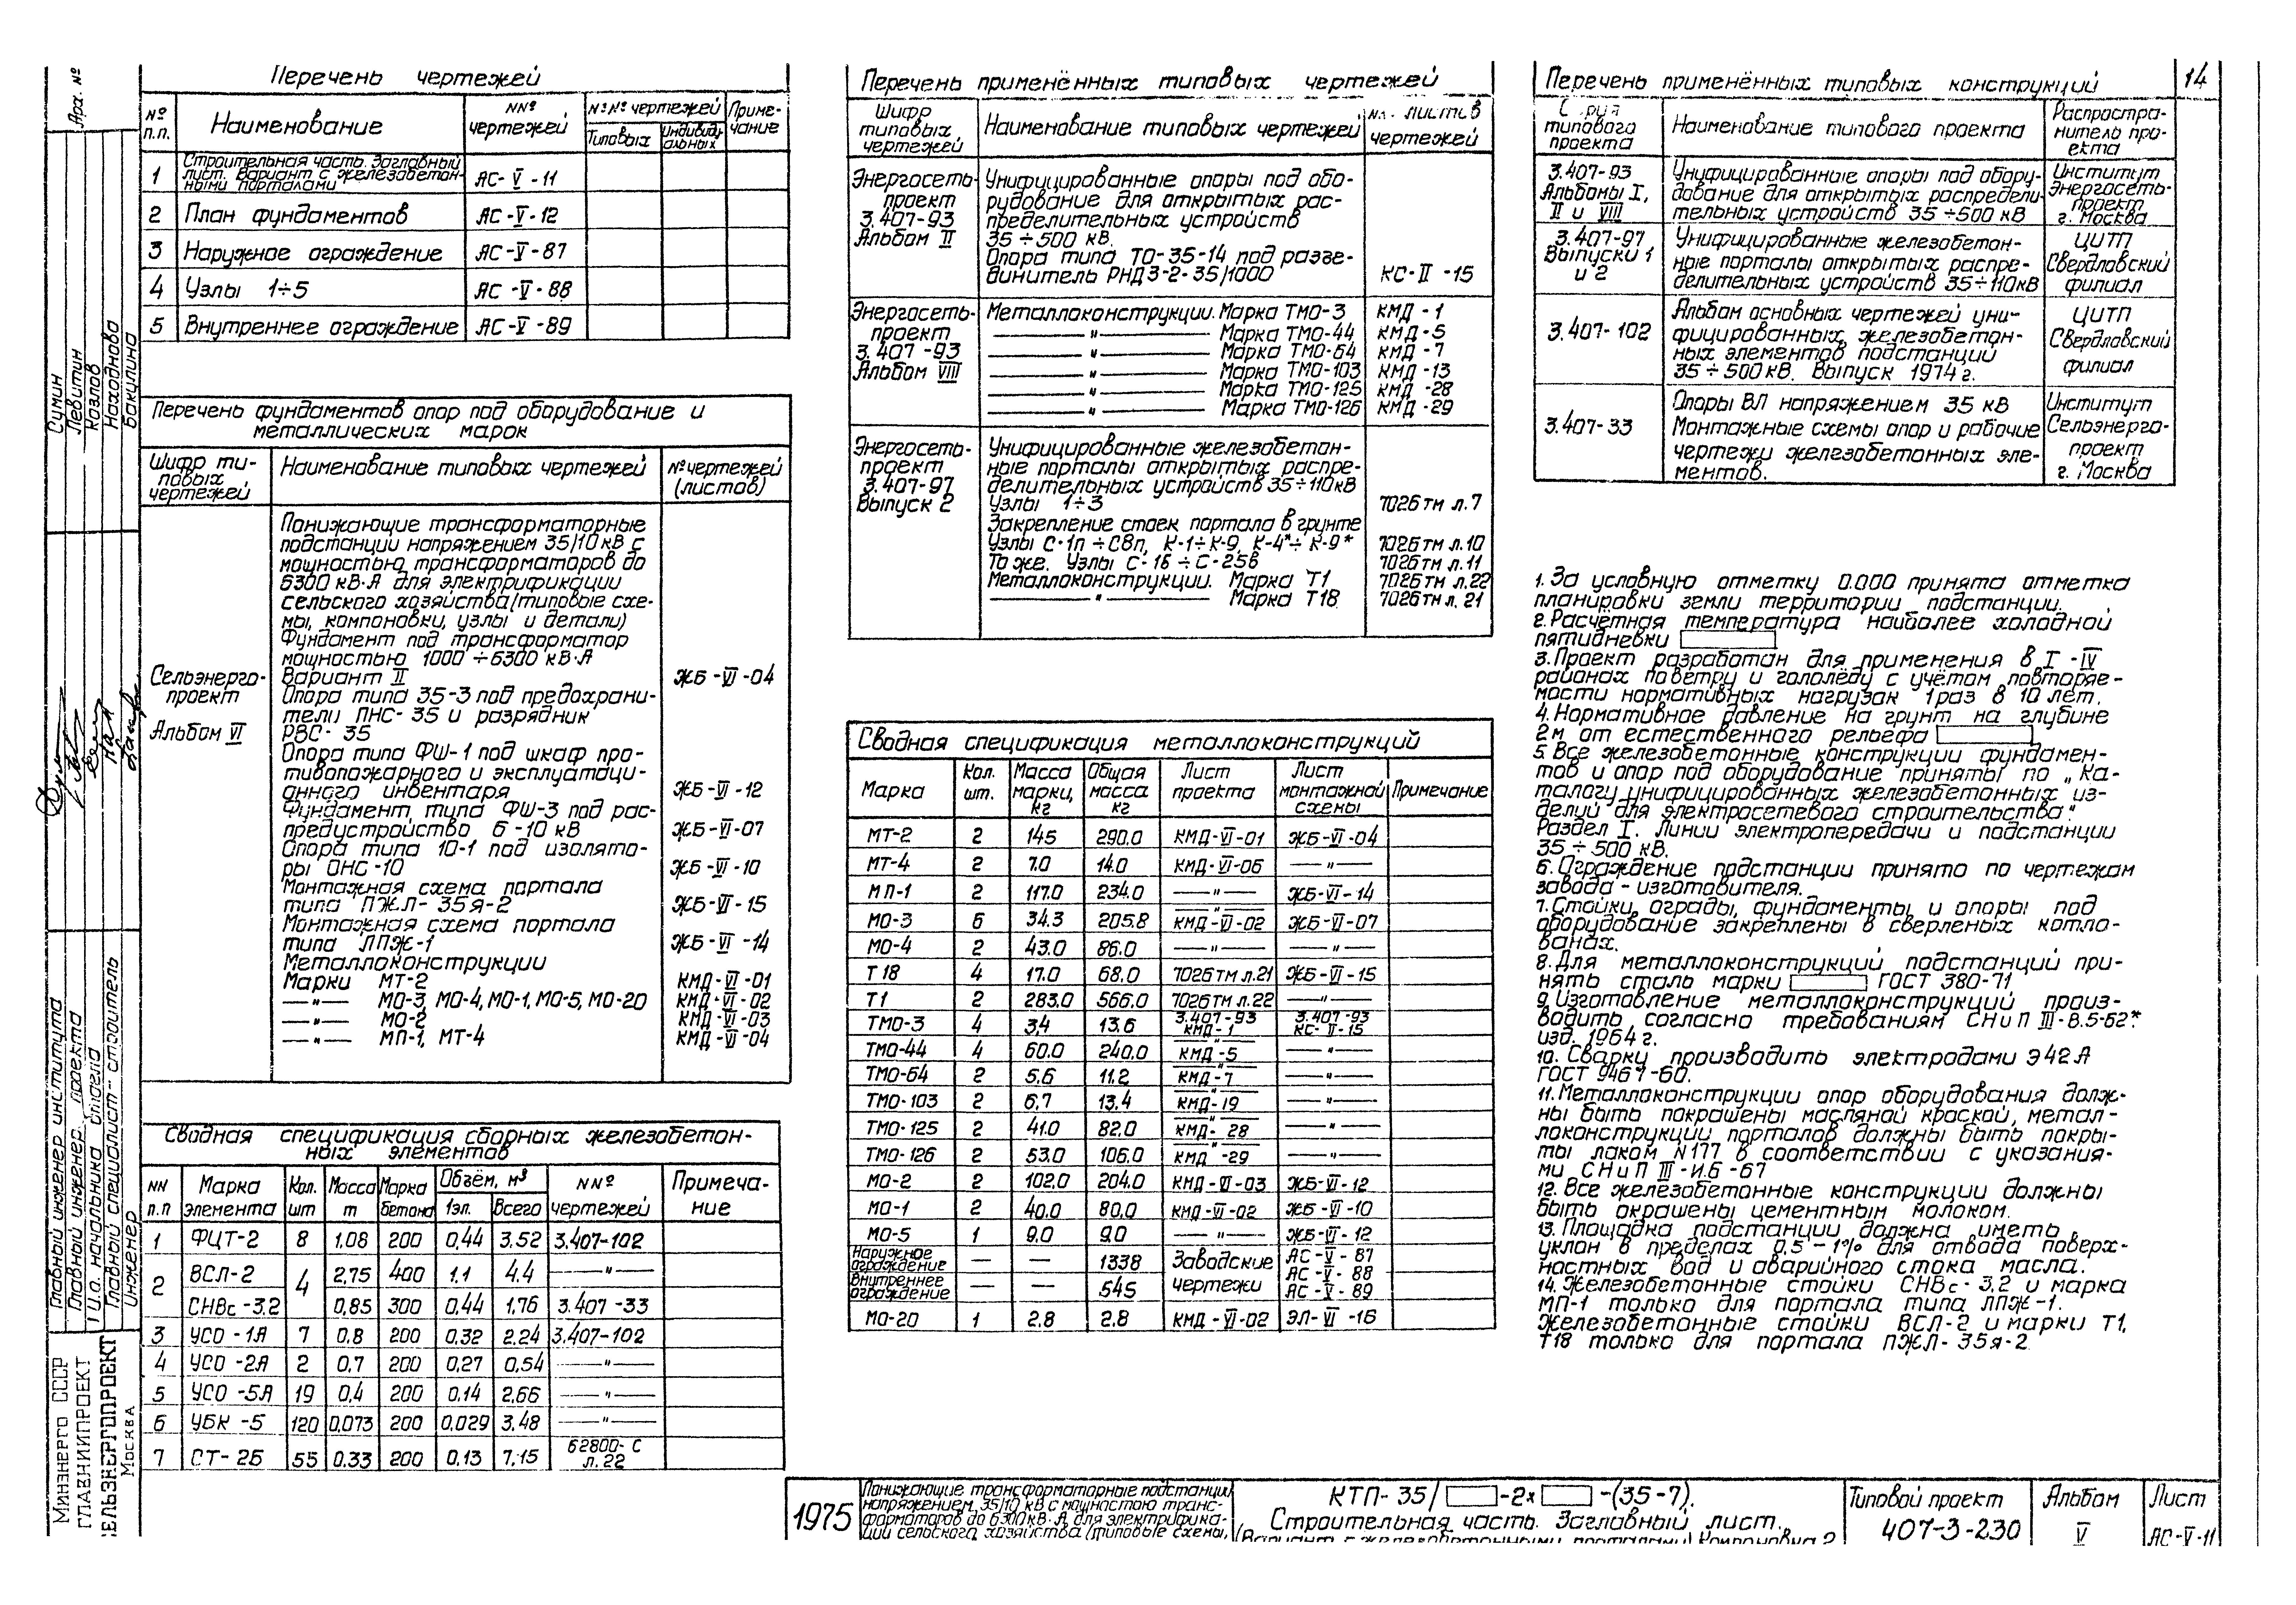 Перечень чертежей
№ п.п.
Наименование
NNº чертежей
№№ чертежей
Типовых
индивидуальных
Примечание
1 Строительная часть. Заглавный
лист. Вариант с железобетон-
ными порталами АС-V-11
2 План фундаментов АС-V-12
3 Наружное ограждение АС-V-87
4 Узлы 1÷5 АС-V-88
5 Внутреннее ограждение АС-V-89
Перечень фундаментов опор под оборудование и
металлических марок
Шифр ти-
повых
чертежей
Наименование типовых чертежей
№ чертежей
(листов)
Сельэнерго-
проект
Альбом VI
Понижающие трансформаторные
подстанции напряжением 35/10 кВ с
мощностью трансформаторов до
6300 кВ·А для электрификации
сельского хозяйства (типовые схе-
мы, компоновки, узлы и детали)
Фундамент под трансформатор
мощностью 1000÷6300 кВ·А
Вариант II ЖБ-VI-04
Опора типа 35-3 под предохрани-
тели ПНС-35 и разрядник
РВС-35
Опора типа ФШ-1 под шкаф про-
тивопожарного и эксплуатаци-
онного инвентаря ЖБ-VI-12
Фундамент типа ФШ-3 под рас-
предустройство 6-10 кВ ЖБ-VI-07
Опора типа 10-1 под изолято-
ры ОНС-10 ЖБ-VI-10
Монтажная схема портала
типа ПЖЛ-35Я-2 ЖБ-VI-15
Монтажная схема портала
типа ЛПЖ-1 ЖБ-VI-14
Металлоконструкции
Марки МТ-2 КМД-VI-01
—"— МО-3, МО-4, МО-1, МО-5, МО-20 КМД-VI-02
—"— МО-2 КМД-VI-03
—"— МП-1, МТ-4 КМД-VI-04
Сводная спецификация сборных железобетон-
ных элементов
NN п.п
Марка элемента
Кол. шт
Масса т
Марка бетона
Объём, м³
1эл.
Всего
NNº чертежей
Примеча-
ние
1 ФЦТ-2 8 1,08 200 0,44 3.52 3.407-102
2 ВСЛ-2 4 2,75 400 1.1 4.4 —"—
СНВс-3.2 0,85 300 0,44 1,76 3.407-33
3 УСО-1А 7 0,8 200 0,32 2,24 3.407-102
4 УСО-2А 2 0,7 200 0,27 0,54 —"—
5 УСО-5А 19 0,4 200 0.14 2,66 —"—
6 УБК-5 120 0,073 200 0,029 3,48 —"—
7 СТ-2Б 55 0.33 200 0,13 7,15 62800-С
л.22
Перечень применённых типовых чертежей
Шифр
типовых
чертежей
Наименование типовых чертежей
листов
чертежей
Энергосеть-
проект
3.407-93
Альбом II
Унифицированные опоры под обо-
рудование для открытых рас-
пределительных устройств
35÷500 кВ.
Опора типа ТО-35-14 под разъе-
динитель РНДЗ-2-35/1000 КС-II-15
Энергосеть-
проект
3.407-93
Альбом VIII
Металлоконструкции. Марка ТМО-3 КМД-1
—"— Марка ТМО-44 КМД-5
—"— Марка ТМО-64 КМД-7
—"— Марка ТМО-103 КМД-13
—"— Марка ТМО-125 КМД-28
—"— Марка ТМО-126 КМД-29
Энергосеть-
проект
3.407-97
Выпуск 2
Унифицированные железобетон-
ные порталы открытых распре-
делительных устройств 35÷110кВ
Узлы 1÷3 7026тм л.7
Закрепление стоек портала в грунте
Узлы С-1п÷С8п, К-1÷К-9, К-4*÷К-9* 7026тм л.10
То же. Узлы С-1б÷С-25б 7026тм л.11
Металлоконструкции. Марка Т1 7026тм л.22
—"— Марка Т18 7026тм л.21
Сводная спецификация металлоконструкций
Марка
Кол. шт.
Масса марки, кг
Общая масса кг
Лист проекта
Лист монтажной схемы
Примечание
МТ-2 2 145 290.0 КМД-VI-01 ЖБ-VI-04
МТ-4 2 7.0 14.0 КМД-VI-06 —"—
МП-1 2 117.0 234.0 —"— ЖБ-VI-14
МО-3 6 34.3 205.8 КМД-VI-02 ЖБ-VI-07
МО-4 2 43.0 86.0 —"— —"—
Т18 4 17.0 68.0 7026тм л.21 ЖБ-VI-15
Т1 2 283.0 566.0 7026тм л.22 —"—
ТМО-3 4 3,4 13.6 3.407-93 КМД-1 3.407-93 КС-II-15
ТМО-44 4 60.0 240.0 —"— КМД-5 —"—
ТМО-64 2 5.6 11.2 —"— КМД-7 —"—
ТМО-103 2 6,7 13.4 —"— КМД-19 —"—
ТМО-125 2 41.0 82.0 —"— КМД-28 —"—
ТМО-126 2 53.0 106.0 —"— КМД-29 —"—
МО-2 2 102.0 204.0 КМД-VI-03 ЖБ-VI-12
МО-1 2 40.0 80.0 КМД-VI-02 ЖБ-VI-10
МО-5 1 9.0 9.0 —"— ЖБ-VI-12
Наружное ограждение — — 1338 Заводские АС-V-87
АС-V-88
Внутреннее ограждение — — 545 чертежи АС-V-89
МО-20 1 2.8 2.8 КМД-VI-02 ЭЛ-VI-16
Перечень применённых типовых конструкций
14
типового
проекта
Наименование типового проекта
Распростра-
нитель про-
екта
3.407-93
Альбомы I,
II и VIII
Унифицированные опоры под обору-
дование для открытых распредели-
тельных устройств 35÷500 кВ
Институт
Энергосеть-
проект
г. Москва
3.407-97
Выпуски 1
и 2
Унифицированные железобетон-
ные порталы открытых распре-
делительных устройств 35÷110кВ
ЦИТП
Свердловский
филиал
3.407-102
Альбом основных чертежей уни-
фицированных железобетон-
ных элементов подстанций
35÷500кВ. Выпуск 1974г.
ЦИТП
Свердловский
филиал
3.407-33
Опоры ВЛ напряжением 35 кВ
Монтажные схемы опор и рабочие
чертежи железобетонных эле-
ментов.
Институт
Сельэнерго-
проект
г. Москва
1. За условную отметку 0.000 принята отметка
планировки земли территории подстанции.
2. Расчётная температура наиболее холодной
пятидневки
3. Проект разработан для применения в I-IV
районах по ветру и гололёду с учётом повторяе-
мости нормативных нагрузок 1раз в 10 лет.
4. Нормативное давление на грунт на глубине
2м от естественного рельефа
5. Все железобетонные конструкции фундамен-
тов и опор под оборудование приняты по „Ка-
талогу унифицированных железобетонных из-
делий для электросетевого строительства".
Раздел I. Линии электропередачи и подстанции
35÷500 кВ.
6. Ограждение подстанции принято по чертежам
завода-изготовителя.
7. Стойки ограды, фундаменты и опоры под
оборудование закреплены в сверленых котло-
ванах.
8. Для металлоконструкций подстанций при-
нять сталь марки ГОСТ 380-71
9. Изготовление металлоконструкций произ-
водить согласно требованиям СНиП III-В.5-62*.
изд. 1964г.
10. Сварку производить электродами Э42А
ГОСТ 9467-60.
11. Металлоконструкции опор оборудования долж-
ны быть покрашены масляной краской, метал-
локонструкции порталов должны быть покры-
ты лаком N177 в соответствии с указания-
ми СНиП III-И.6-67
12. Все железобетонные конструкции должны
быть окрашены цементным молоком.
13. Площадка подстанции должна иметь
уклон в пределах 0,5-1% для отвода поверх-
ностных вод и аварийного стока масла.
14. Железобетонные стойки СНВс-3,2 и марка
МП-1 только для портала типа ЛПЖ-1.
Железобетонные стойки ВСЛ-2 и марки Т1,
Т18 только для портала ПЖЛ-35Я-2
1975
Понижающие трансформаторные подстанции
напряжением 35/10 кВ с мощностью транс-
форматоров до 6300кВ·А для электрифика-
ции сельского хозяйства (типовые схемы,
КТП-35/ -2х -(35-7).
Строительная часть. Заглавный лист.
(Вариант с железобетонными порталами) Компоновка 2
Типовой проект
407-3-230
Альбом
V
Лист
АС-V-11
Арх. №
Сумин
Левитин
Козлов
Находнова
Бакулина
Главный инженер института
Главный инженер проекта
И.о. начальника отдела
Главный специалист-строитель
Инженер
Минэнерго СССР
ГЛАВНИИПРОЕКТ
ЕЛЬЭНЕРГОПРОЕКТ
Москва